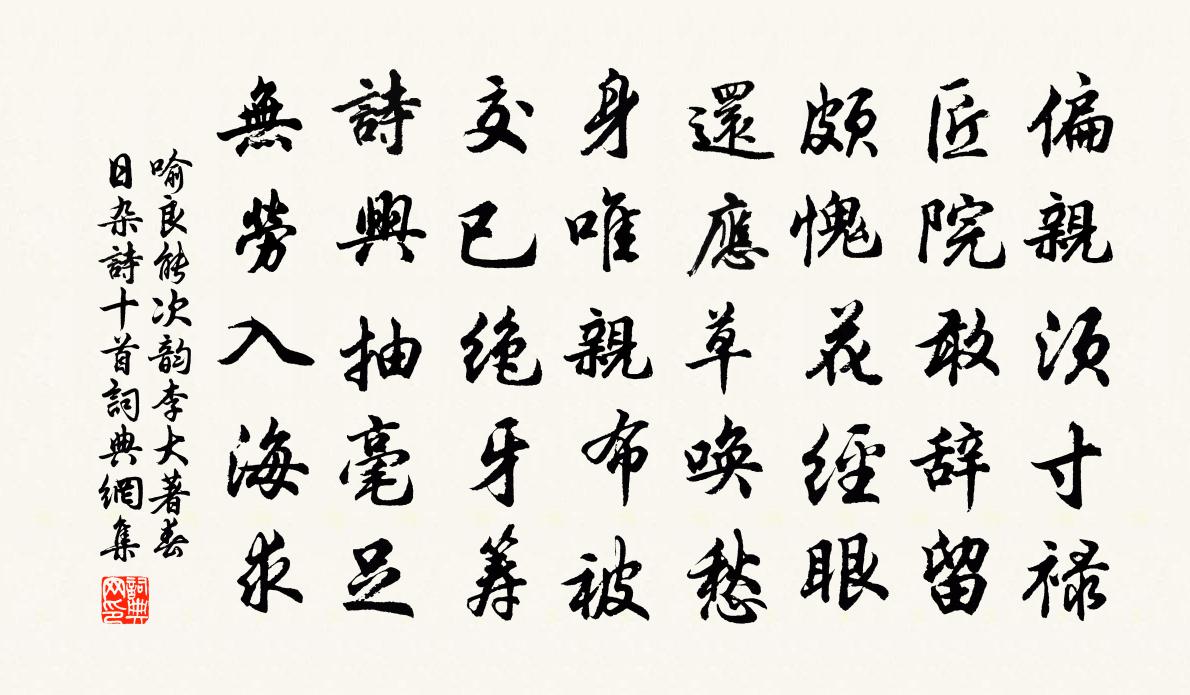 偏親須寸禄
匠院敢辞留
頗愧花經眼
還應草喚愁
身唯親布被
交已绝牙筹
詩興抽毫足
無勞入海求
喻良能次韵李大著春
日杂詩十首詞典網集
詞典网印